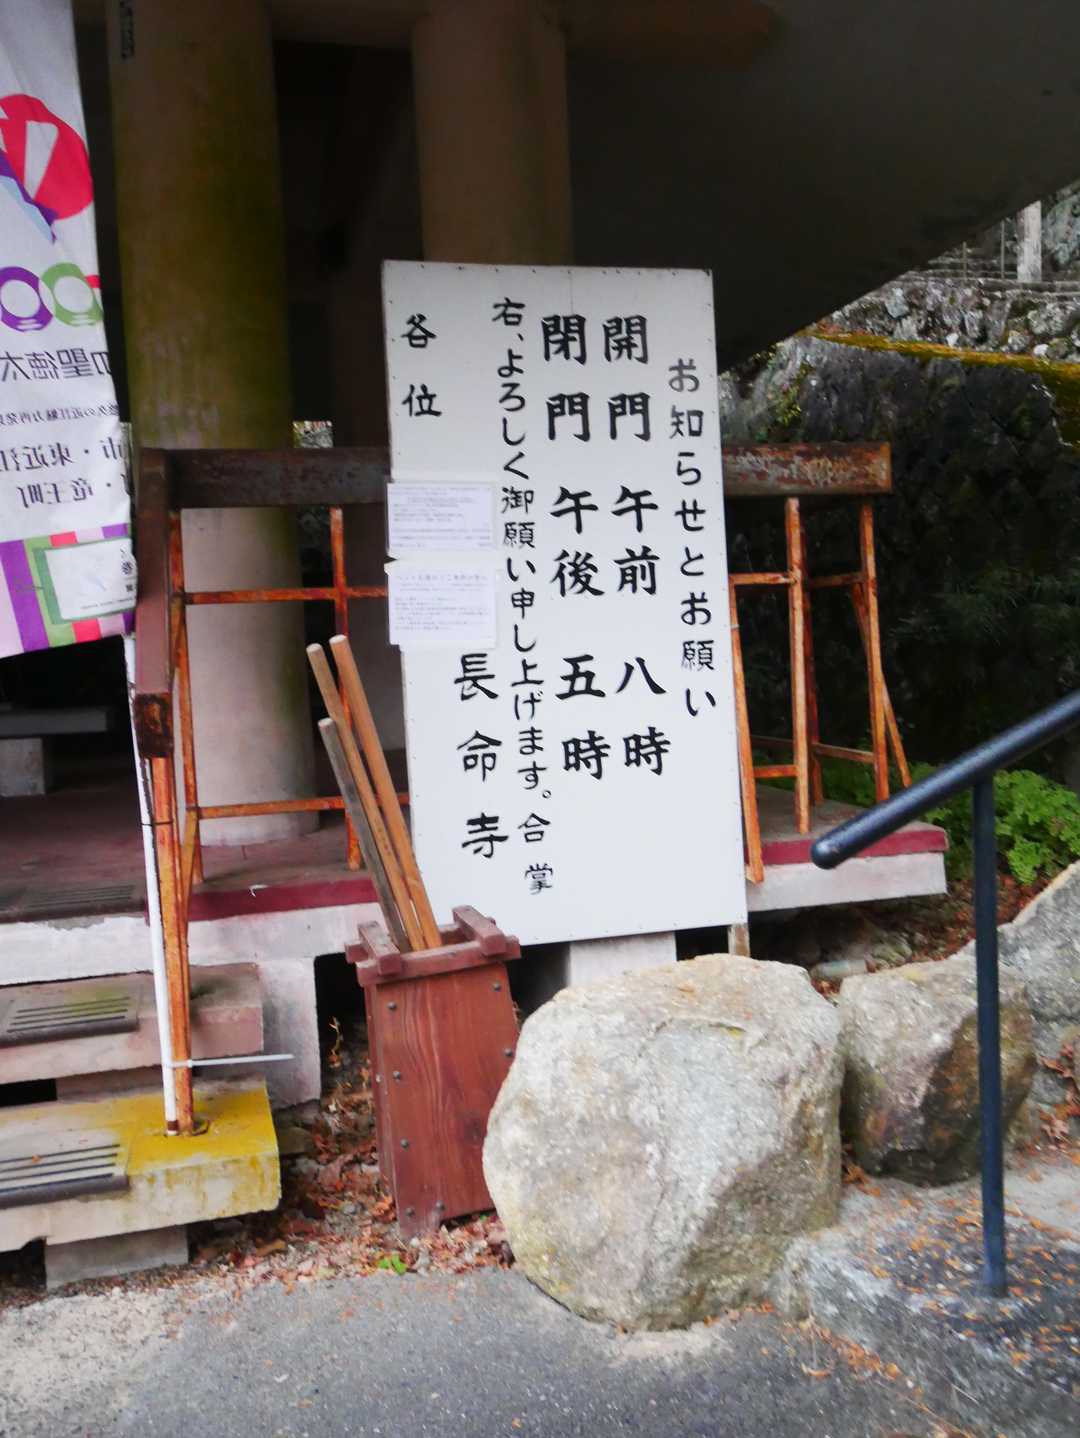 お知らせとお願い
開門 午前 八時
閉門 午後 五時
右、よろしく御願い申し上げます。合掌
長命寺
各位
聖徳太
市・東近江
・竜王町